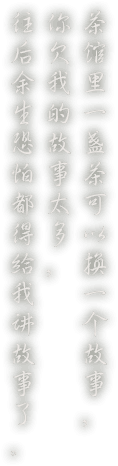 茶馆里一盏茶可以换一个故事。
你欠我的故事太多。
往后余生恐怕都得给我讲故事了。